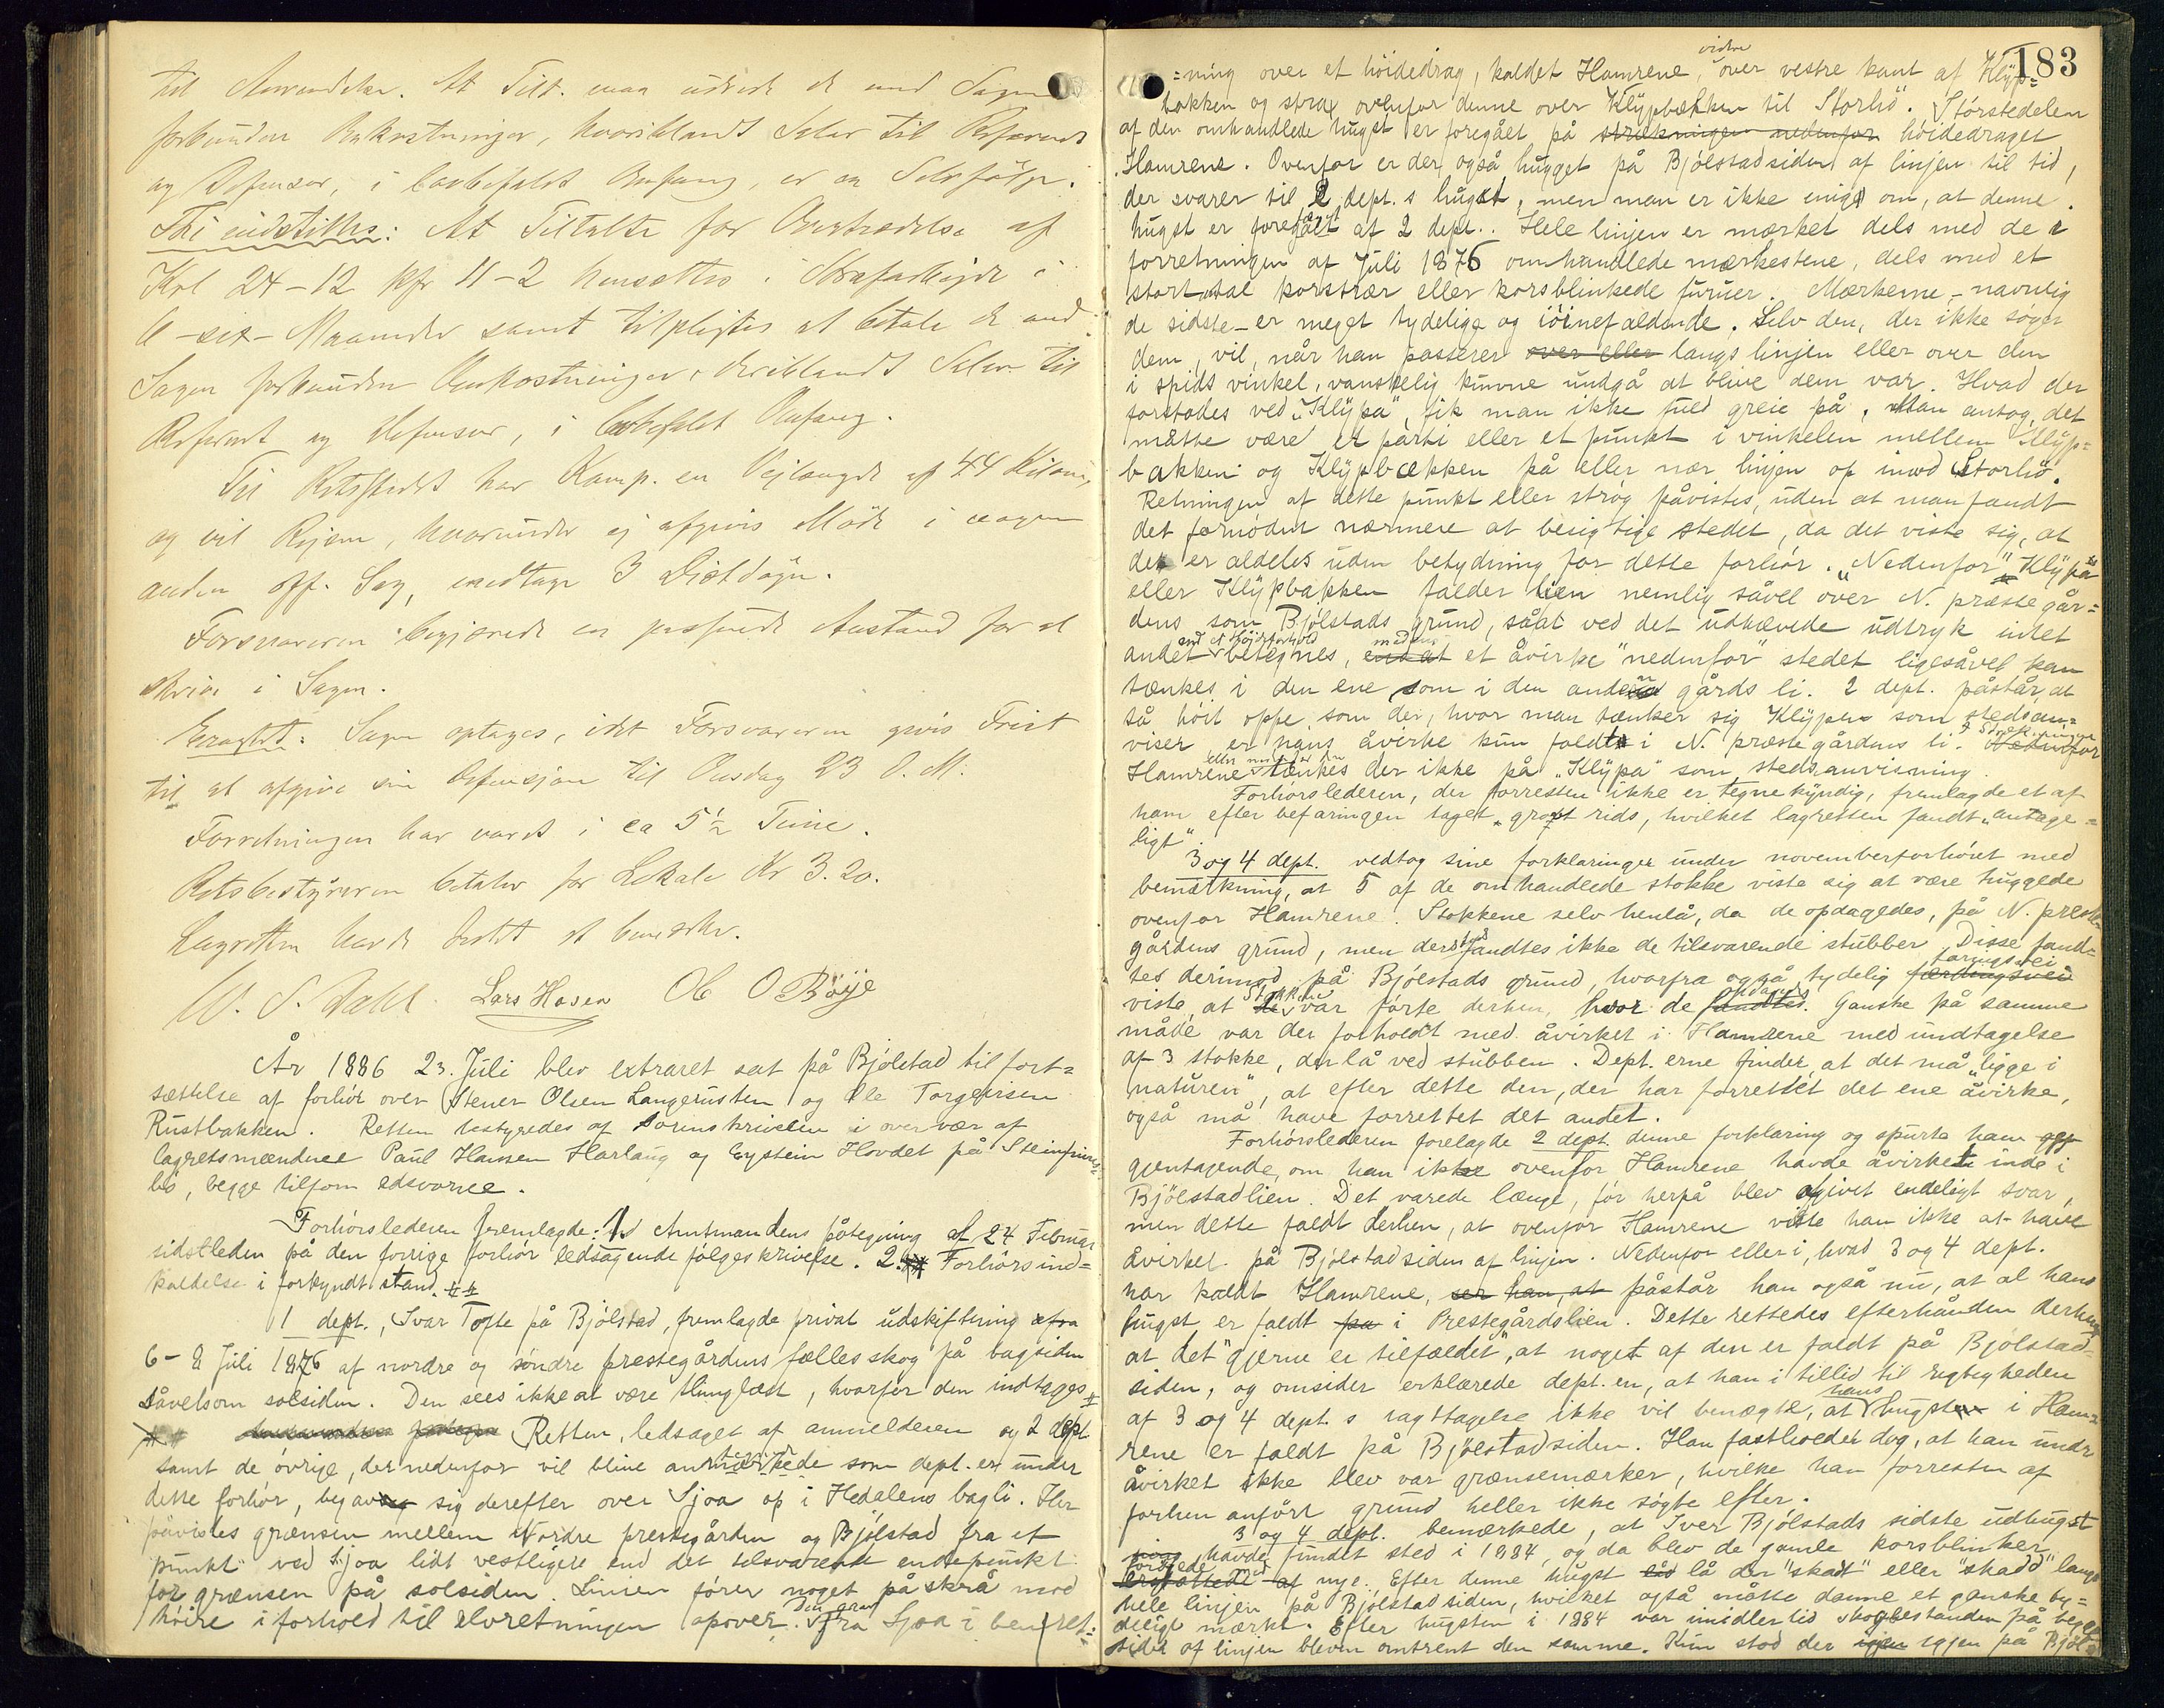 til Anvendelse. At Tilt. maa udrede de med Sagen
forbundne Omkostninger, hvoriblandt Salær til Referent
og Defensor, i lovbefalet Omfang, er en Selvfølge.
Thi indstilles: At Tiltalte for Overtrædelse af
Krl 24-12 kfr 11-2 hensættes i Strafarbejde i
6 -sex- Maaneder samt tilpligtes at betale de med
Sagen forbundne Omkostninger, deriblandt Salær til
Referent og Defensor, i lovbefalet Omfang.
Til Retsstedet har Komp. en Vejlængde af 44 Kilom,
og vil Rejsen, hvorunder ej afgives Møde i nogen
anden off. Sag, medtage 3 Diætdøgn.
Forsvareren begjærede en passende Anstand for at
skrive i Sagen.
Eragtet: Sagen optages, idet Forsvareren gives Frist
til at afgive sin Defensjon til Onsdag 23 D. M.
Forretningen har varet i ca 5 1/2 Time.
Retsbestyreren betaler for Lokale Kr 3.20.
Lagretten havde Intet at bemærke.
W. S. Dahl. Lars Hosen Ole O Böÿe
År 1886 23. Juli blev extraret sat på Bjölstad til fort=
sættelse af forhör over Stener Olsen Langerusten og Ole Torgeirsen
Rustbakken. Retten bestyredes af sorenskriveren i overvær af
lagretsmændne Paul Hansen Harlaug og Eystein Hovdet på
bö, begge tilforn edsvorne.
Forhörslederen fremlagde: 1. Amtmandens påtegning af 24 Februar
sidstleden på den forrige forhör ledsagende fölgeskrivelse. 2. Forhörsind=
kaldelse i forkyndt stand. ##
1 dept., Ivar Tofte på Bjölstad, fremlagde privat udskiftning fra
6-8 Juli 1876 af nordre og söndre prestegårdens fælles skog på bagsiden
såvelsom solsiden. Den sees ikke at være thinglæst, hvorfor den indtages #
## Retten, ledsaget af anmelderen og 2 dept.
samt de övrige, der nedenfor vil blive anmærkede som dept. er under
dette forhör, begav sig derefter over Sjoa op i Hedalens bagli. Her
påvistes grænsen mellem Nordre prestegården og Bjölstad fra et
punkt ved Sjoa lidt vestligere end det tilsvarende endepunkt
for grænsen på solsiden. Linien förer noget på skrå mod
höire i forhold til elvretningen opover. Den går fra Sjoa i ben ret=
183
=ning over et höidedrag, kaldet Hamrene, videre over vestre kant af Klÿp=
bakken og strax ovenfor denne over Klÿpbækken til Storhö. Störstedelen
af den omhandlede hugst er foregået på strækningen nedenfor höidedraget
Hamrene. Ovenfor er der også hugget på Bjölstadsiden af linjen til tid,
der svarer til 2 dept.s hugst, men man er ikke enige om, at denne
hugst er foregået af 2 dept.. Hele linjen er mærket dels med de i
forretningen af Juli 1876 omhandlede mærkestene, dels med et
stort antal korstrær eller korsblinkede furuer. Mærkerne - navnlig
de sidste - er meget tydelige og iöinefaldende. Selv den, der ikke söger
dem, vil, når han passerer over eller langs linjen eller over den
i spids vinkel, vanskelig kunne undgå at blive dem var. Hvad der
forstodes ved "Klÿpa", fik man ikke fuld greie på. Man antog, det
måtte være et parti eller et punkt i vinkelen mellem Klÿp=
bakken og Klÿpbækken på eller nær linjen op imod Storhö.
Retningen af dette punkt eller strög påvistes, uden at man fandt
det fornödent nærmere at besigtige stedet, da det viste sig, at
det er aldeles uden betydning for dette forhör. "Nedenfor" Klÿpa
eller Klÿpbakken falder lien nemlig såvel over N. præstegår=
dens som Bjölstads grund, såat ved det udhævede udtryk intet
andet end et höideforhold betegnes, end at et åvirke "nedenfor" stedet ligesåvel kan
tænkes i den ene som i den anden gårds li. 2 dept. påstår, at
så höit oppe som der, hvor man tænker sig Klÿpen som stedsan=
viser, er hans åvirke kun faldt i N. præstegårdens li. Nedenfor
Hamrene tænkes der ikke på "Klÿpa" som stedsanvisning.
Forhörslederen, der forresten ikke er tegnekyndig, fremlagde et af
ham efter befaringen taget "groft rids, hvilket lagretten fandt "antage=
ligt".
3 og 4 dept. vedtog sine forklaringer under novemberforhöret med
bemærkning, at 5 af de omhandlede stokke viste sig at være huggede
ovenfor Hamrene. Stokkene selv henlå, da de opdagedes, på N. preste=
gårdens grund, men der fandtes ikke de tilsvarende stubber. Disse fand=
tes derimod på Bjölstads grund, hvorfra også tydelig faringsvei
viste, at stokkene var förte derhen, hvor de fandtes. Ganske på samme
måde var der forholdt med åvirket i Hamrene med undtagelse
af 3 stokke, der lå ved stubben. Dept. erne finder, at det må "ligge i
naturen", at efter dette den, der har forrettet det ene åvirke,
også må have forrettet det andet.
Forhörslederen forelagde 2 dept. denne forklaring og spurte ham
gjentagende, om han ikke ovenfor Hamrene havde åvirket inde i
Bjölstadlien. Det varede længe, för herpå blev afgivet endeligt svar,
men dette faldt derhen, at ovenfor Hamrene viste han ikke at have
åvirket på Bjölstadsiden af linjen. Nedenfor eller i, hvad 3 og 4 dept.
har kaldt Hamrene, ser han, at påstår han også nu, at al hans
hugst er faldt på i Prestegårdslien. Dette rettedes efterhånden derhen,
at det "gjerne er tilfældet", at noget af den er faldt på Bjölstad=
siden, og omsider erklærede dept. en, at han i tillid til rigtigheden
af 3 og 4 dept.s iagttagelse ikke vil benægte, at hans hugst i Ham=
rene er faldt på Bjölstadsiden. Han fastholder dog, at han under
åvirket ikke blev var grænsemærker, hvilke han forresten af
forhen anfört grund heller ikke sögte efter.
3 og 4 dept. bemærkede, at Iver Bjölstads sidste udhugst
havde fundet sted i 1884, og da blev de gamle korsblinker
nye. Efter denne hugst lå der "skadt" eller "skadd" langs
hele linjen på Bjölstadsiden, hvilket også måtte danne et ganske ty=
deligt mærke. Efter hugsten i 1884 var imidlertid skogbestanden på begge
sider af linjen bleven omtrent den samme. Kun stod der igjen på Bjöl=